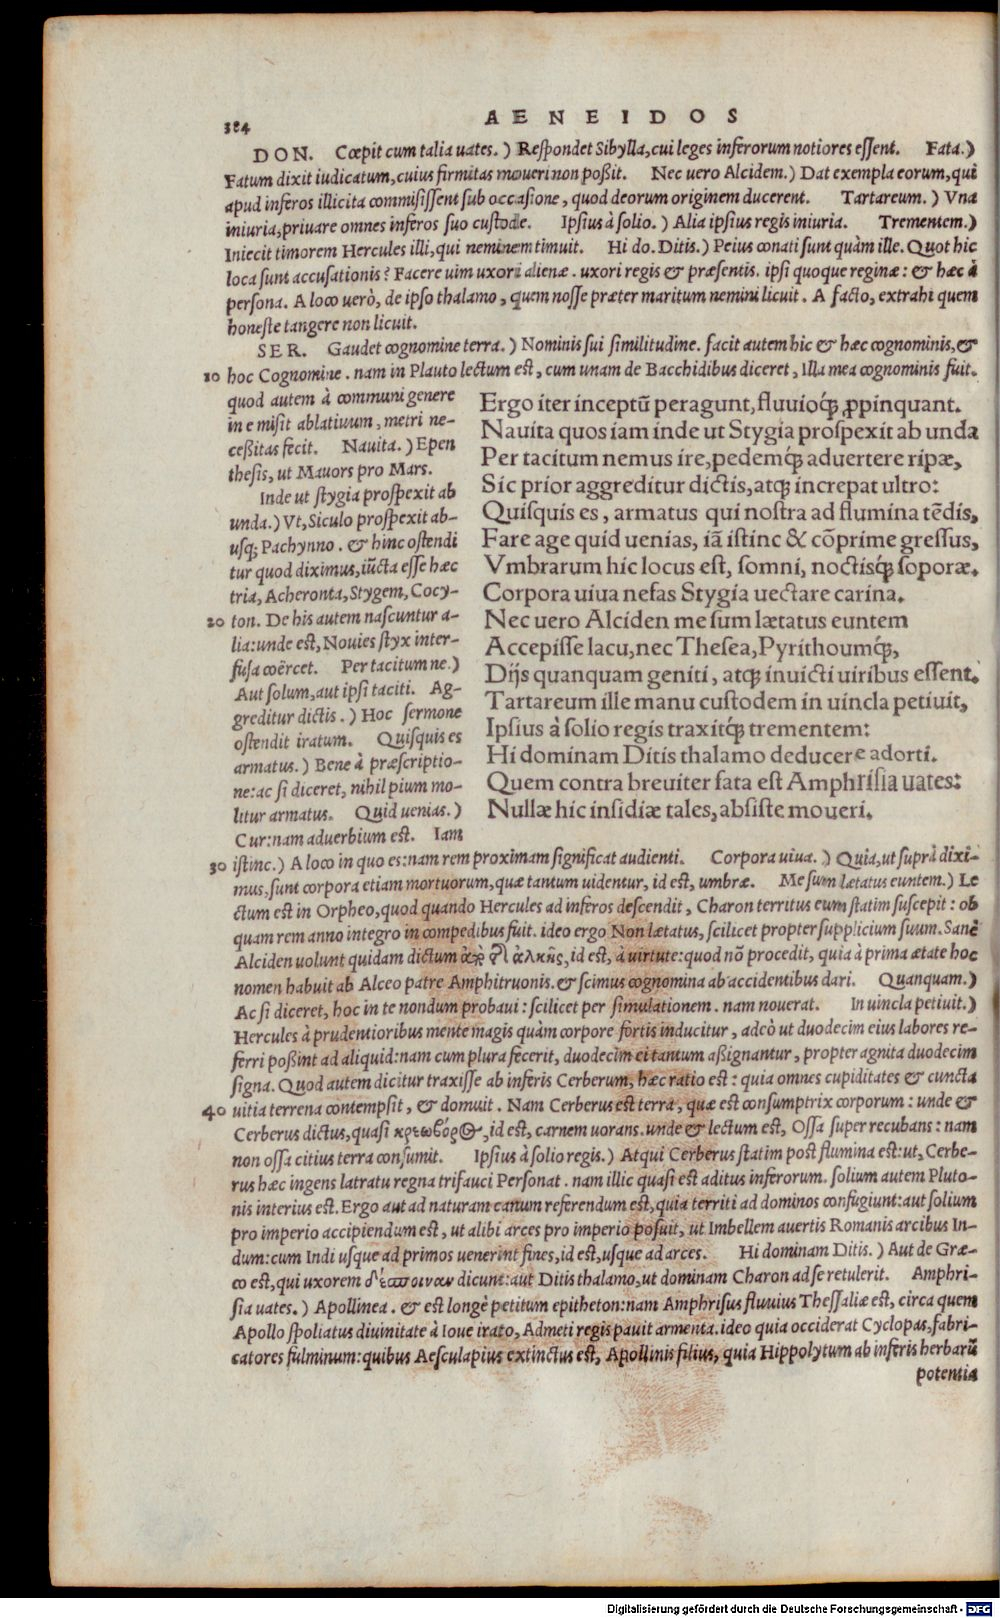 384
AENEIDOS
DON. Cœpit cum talia uates.) Respondet Sibylla, cui leges inferorum notiores essent. Fata.)
Fatum dixit iudicatum, cuius firmitas moueri non poßit. Nec uero Alcidem.) Dat exempla eorum, qui
apud inferos illicita commisissent sub occasione, quod deorum originem ducerent. Tartareum.) Vna
iniuria, priuare omnes inferos suo custode. Ipsius à solio.) Alia ipsius regis iniuria. Trementem.)
Iniecit timorem Hercules illi, qui neminem timuit. Hi do. Ditis.) Peius conati sunt quàm ille. Quot hic
loca sunt accusationis? Facere uim uxori alienæ. uxori regis & præsentis. ipsi quoque reginæ: & hæc à
persona. A loco uerò, de ipso thalamo, quem nosse præter maritum nemini licuit. A facto, extrahi quem
honeste tangere non licuit.
SER. Gaudet cognomine terra.) Nominis sui similitudine. facit autem hic & hæc cognominis, &
10 hoc Cognomine. nam in Plauto lectum est, cum unam de Bacchidibus diceret, Illa mea cognominis fuit.
quod autem à communi genere
in e misit ablatiuum, metri ne-
ceßitas fecit. Nauita.) Epen
thesis, ut Mauors pro Mars.
Inde ut stygia prospexit ab
unda.) Vt, Siculo prospexit ab-
usq; Pachynno. & hinc ostendi
tur quod diximus, iũcta esse hæc
tria, Acheronta, Stygem, Cocy-
20 ton. De his autem nascuntur a-
lia: unde est, Nouies styx inter-
fusa coërcet. Per tacitum ne.)
Aut solum, aut ipsi taciti. Ag-
greditur dictis.) Hoc sermone
ostendit iratum. Quisquis es
armatus.) Bene à præscriptio-
ne: ac si diceret, nihil pium mo-
litur armatus. Quid uenias.)
Cur: nam aduerbium est. Iam
Ergo iter inceptũ peragunt, fluuioq́; ꝓpinquant.
Nauita quos iam inde ut Stygia prospexit ab unda
Per tacitum nemus ire, pedemq́; aduertere ripæ,
Sic prior aggreditur dictis, atq; increpat ultro:
Quisquis es, armatus qui nostra ad flumina tẽdis,
Fare age quid uenias, iã istinc & cõprime gressus,
Vmbrarum hic locus est, somni, noctisq́; soporæ.
Corpora uiua nefas Stygia uectare carina.
Nec uero Alciden me sum lætatus euntem
Accepisse lacu, nec Thesea, Pyrithoumq́;,
Dijs quanquam geniti, atq; inuicti uiribus essent.
Tartareum ille manu custodem in uincla petiuit,
Ipsius à solio regis traxitq́; trementem:
Hi dominam Ditis thalamo deducere adorti.
Quem contra breuiter fata est Amphrisia uates:
Nullæ hic insidiæ tales, absiste moueri.
30 istinc.) A loco in quo es: nam rem proximam significat audienti. Corpora uiua.) Quia, ut suprà dixi-
mus, sunt corpora etiam mortuorum, quæ tantum uidentur, id est, umbræ. Me sum lætatus euntem.) Le
ctum est in Orpheo, quod quando Hercules ad inferos descendit, Charon territus eum statim suscepit: ob
quam rem anno integro in compedibus fuit. ideo ergo Non lætatus, scilicet propter supplicium suum. Sanè
Alciden uolunt quidam dictum ἀπὸ τῆ ἀλκῆς, id est, à uirtute: quod nõ procedit, quia à prima ætate hoc
nomen habuit ab Alceo patre Amphitruonis. & scimus cognomina ab accidentibus dari. Quanquam.)
Ac si diceret, hoc in te nondum probaui: scilicet per simulationem. nam nouerat. In uincla petiuit.)
Hercules à prudentioribus mente magis quàm corpore fortis inducitur, adeò ut duodecim eius labores re-
ferri poßint ad aliquid: nam cum plura fecerit, duodecim ei tantum aßignantur, propter agnita duodecim
signa. Quod autem dicitur traxisse ab inferis Cerberum, hæc ratio est: quia omnes cupiditates & cuncta
40 uitia terrena contempsit, & domuit. Nam Cerberus est terra, quæ est consumptrix corporum: unde &
Cerberus dictus, quasi κρεωβόρος, id est, carnem uorans. unde & lectum est, Ossa super recubans: nam
non ossa citius terra consumit. Ipsius à solio regis.) Atqui Cerberus statim post flumina est: ut, Cerbe-
rus hæc ingens latratu regna trifauci Personat. nam illic quasi est aditus inferorum. solium autem Pluto-
nis interius est. Ergo aut ad naturam canum referendum est, quia territi ad dominos confugiunt: aut solium
pro imperio accipiendum est, ut alibi arces pro imperio posuit, ut Imbellem auertis Romanis arcibus In-
dum: cum Indi usque ad primos uenerint fines, id est, usque ad arces. Hi dominam Ditis.) Aut de Græ-
co est, qui uxorem δέσποιναν dicunt: aut Ditis thalamo, ut dominam Charon ad se retulerit. Amphri-
sia uates.) Apollinea. & est longè petitum epitheton: nam Amphrisus fluuius Thessaliæ est, circa quem
Apollo spoliatus diuinitate à Ioue irato, Admeti regis pauit armenta. ideo quia occiderat Cyclopas, fabri-
catores fulminum: quibus Aesculapius extinctus est, Apollinis filius, quia Hippolytum ab inferis herbarũ
potentia
Digitalisierung gefördert durch die Deutsche Forschungsgemeinschaft - DFG